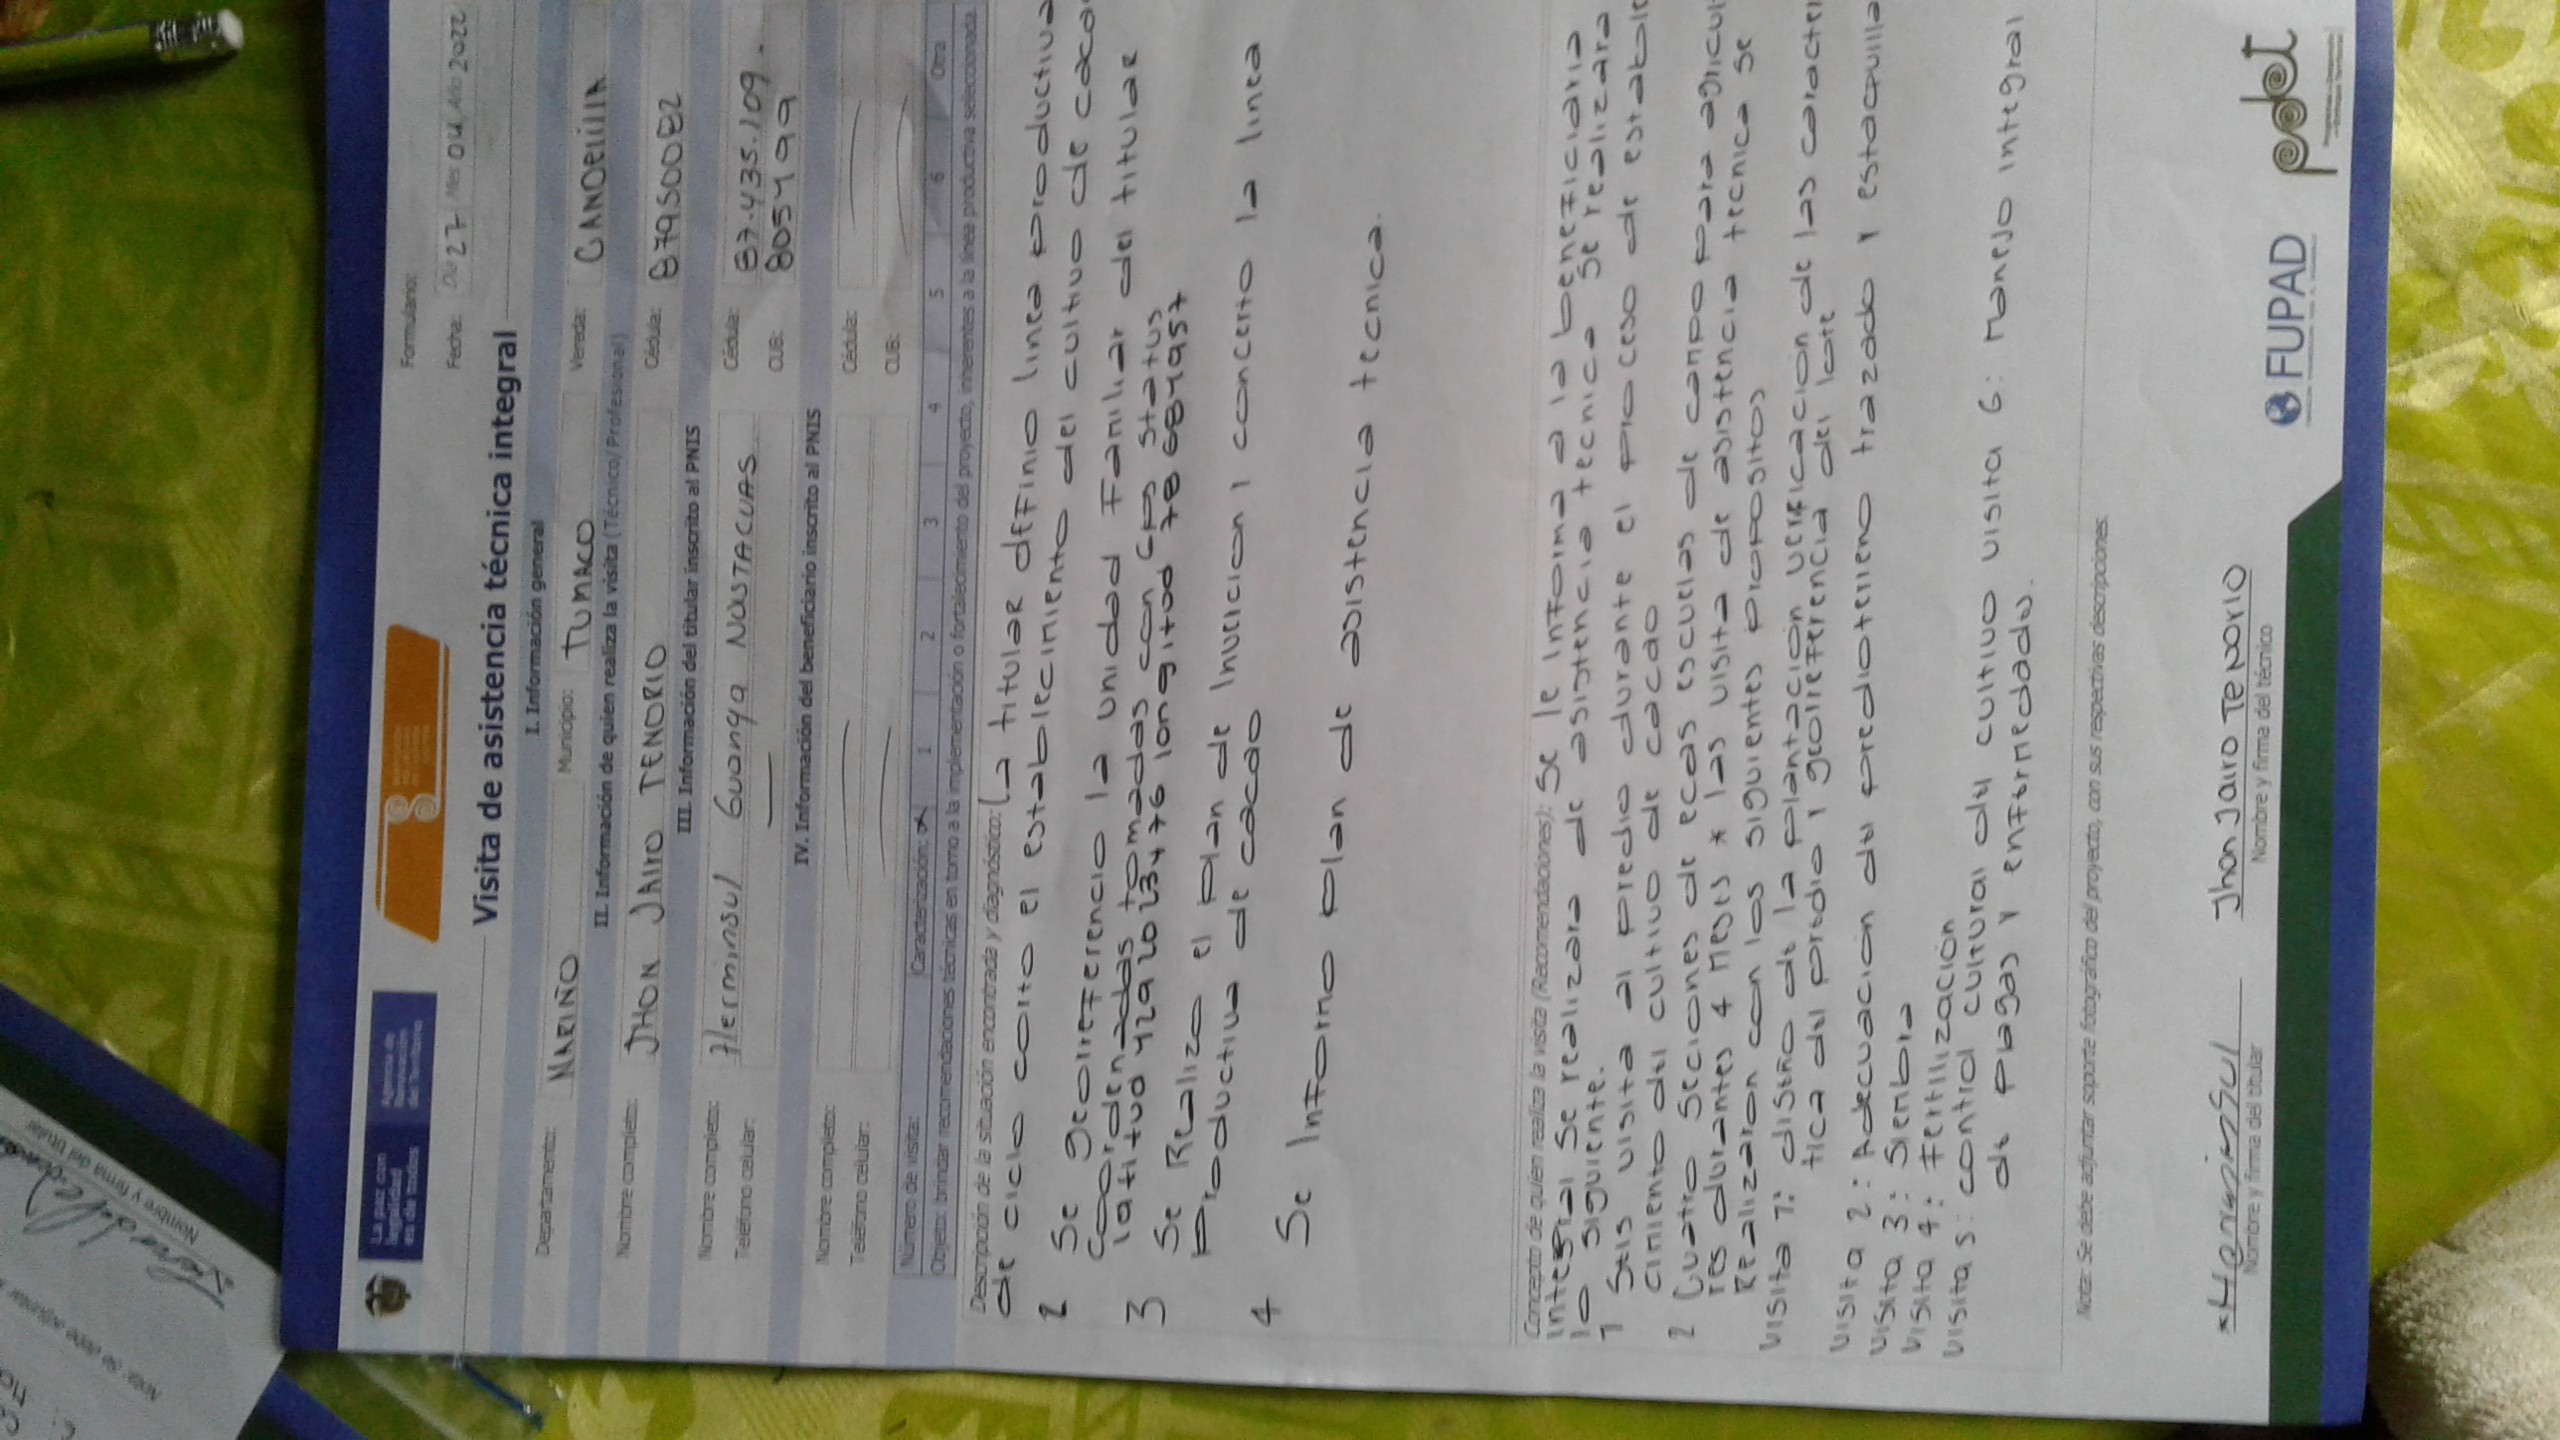 La paz con
legalidad
es de todos
Agencia de
Renovación
del Territorio
Formulario:
Fecha: Día 27 Mes 04 Año 2022
Visita de asistencia técnica integral
I. Información general
Departamento: NARIÑO Municipio: TUMACO Vereda: CANDELILLA
II. Información de quien realiza la visita (Técnico/ Profesional)
Nombre completo: JHON JAIRO TENORIO Cédula: 87950082
III. Información del titular inscrito al PNIS
Nombre completo: Herminsul Guanga NASTACUAS Cédula: 87.435.109.
Teléfono celular: — CUB: 805499
IV. Información del beneficiario inscrito al PNIS
Nombre completo: Cédula:
Teléfono celular: CUB:
Número de visita: Caracterización: x 1 2 3 4 5 6 Otra
Objeto: brindar recomendaciones técnicas en torno a la implementación o fortalecimiento del proyecto, inherentes a la línea productiva seleccionada.
Descripción de la situación encontrada y diagnóstico: La titular definio linea productiva
de ciclo corto el establecimiento del cultivo de cacao
2 Se georreferencio la unidad familiar del titular
coordenadas tomadas con GPS status
latitud longitod
3 Se Realizo el plan de Invercion y concerto la linea
productiva de cacao
4 Se Informo plan de asistencia tecnica.
Concepto de quien realiza la visita (Recomendaciones): Se le informa a la beneficiaria
integral Se realizara de asistencia tecnica Se realizara
lo siguiente.
1 Seis visita al predio durante el proceso de estable
cimiento del cultivo de cacao
2 Cuatro Seciones de ecas escuelas de campo para agricul
res durantes 4 meses * las visita de asistencia tecnica se
Realizaron con los siguientes propositos
Visita 1: diseño de la plantación verificacion de las caracter
tica del predio y georreferencia del lote
Visita 2: Adecuación del predio terreno trazado y estaquilla
Visita 3: Siembra
Visita 4: Fertilización
Visita 5: control cultural del cultivo visita 6: Manejo integral
de plagas y enfermedades.
Nota: Se debe adjuntar soporte fotográfico del proyecto, con sus respectivas descripciones.
Jhon Jairo Tenorio
Nombre y firma del titular Nombre y firma del técnico
FUPAD
pdet
Nombre y firma del titular